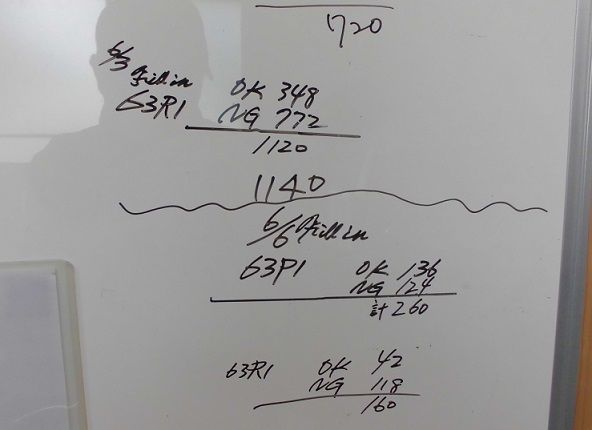 1720
6/3 Fill in
63R1 OK 348
NG 772
1120
1140
6/6 Fill in
63P1 OK 136
NG 124
計 260
63R1 OK 42
NG 118
160